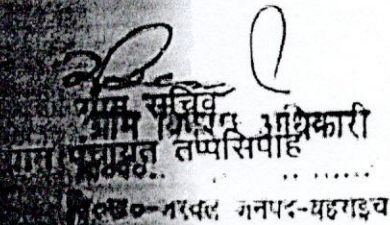 ग्राम सचिव
ग्राम विकास अधिकारी
ग्राम पंचायत तप्पेसिपाह
वि०ख०-नरवल जनपद-बहराइच